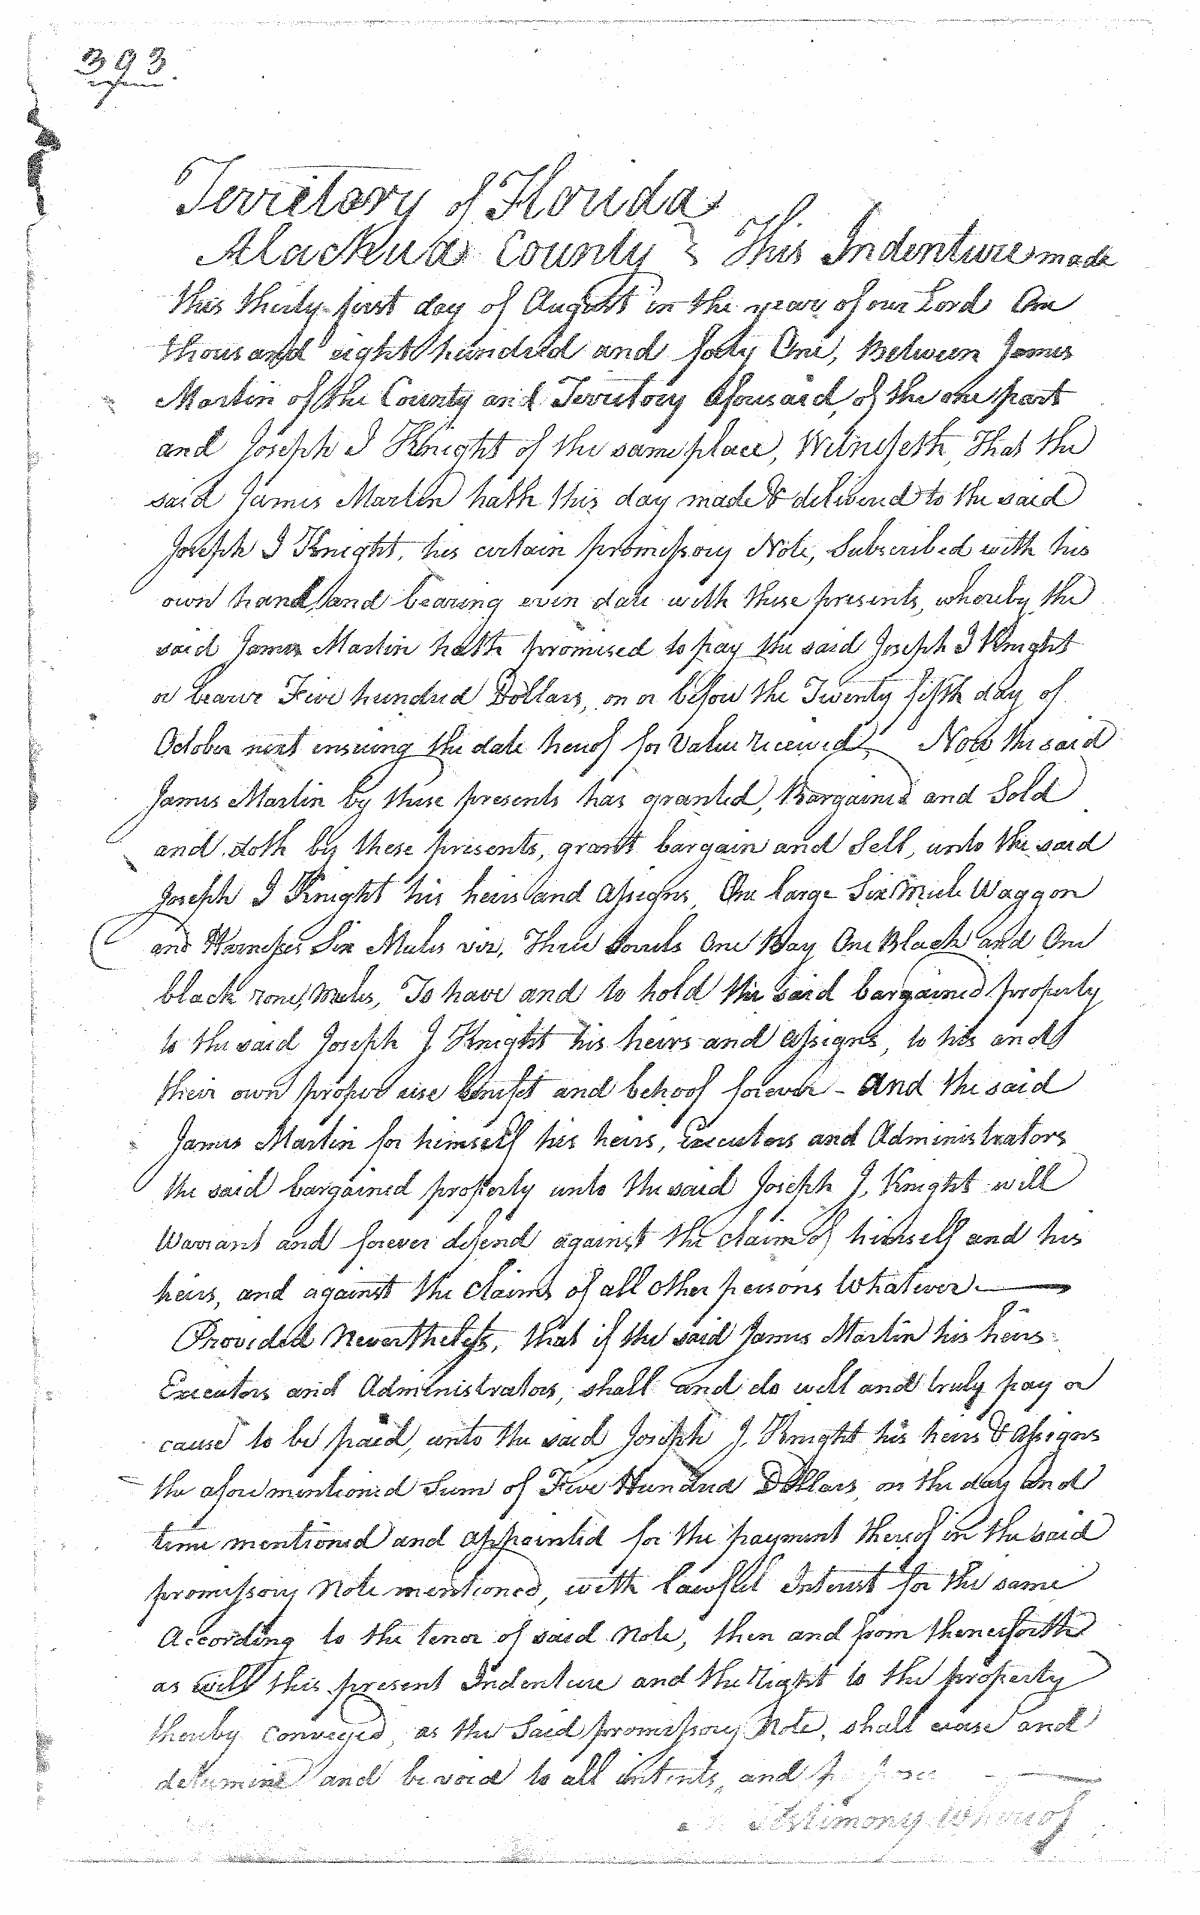 393.
Territory of Florida
Alachua County } This Indenture made
this thirty first day of August in the year of our Lord One
thousand eight hundred and forty One, Between James
Martin of the County and Territory aforesaid, of the one part
and Joseph J Knight of the same place, Witnesseth, That the
said James Martin hath this day made & delivered to the said
Joseph J Knight, his certain promissory Note, Subscribed with his
own hand, and bearing even date with these presents, whereby the
said James Martin hath promised to pay the said Joseph J Knight
or bearer Five hundred Dollars, on or before the Twenty fifth day of
October next ensuing the date hereof for Value received, Now the said
James Martin by these presents has granted, Bargained and Sold
and doth by these presents, grant bargain and Sell, unto the said
Joseph J Knight his heirs and assigns, One large Six Mule Waggon
and Harnesses Six Mules viz, Three Sorrels One Bay One Black and One
black roned, Mules, To have and to hold the said bargained property
to the said Joseph J. Knight his heirs and assigns, to his and
their own proper use benefit and behoof forever - And the said
James Martin for himself his heirs, Executors and Administrators
the said bargained property unto the said Joseph J, Knight will
Warrant and forever defend against the claim of himself and his
heirs, and against the claims of all other persons Whatever
Provided Nevertheless, that if the said James Martin his heirs
Executors and Administrators, shall and do well and truly pay or
cause to be paid, unto the said Joseph J. Knight his heirs & assigns
the afore mentioned Sum of Five Hundred Dollars, on the day and
time mentioned and appointed for the payment thereof in the said
promissory Note mentioned, with lawful Interest for the same
According to the tenor of said Note, then and from thenceforth
as well this present Indenture and the Right to the property
thereby conveyed, as the Said promissory Note, shall cease and
determine and be void to all intents, and purposes
In Testimony Whereof